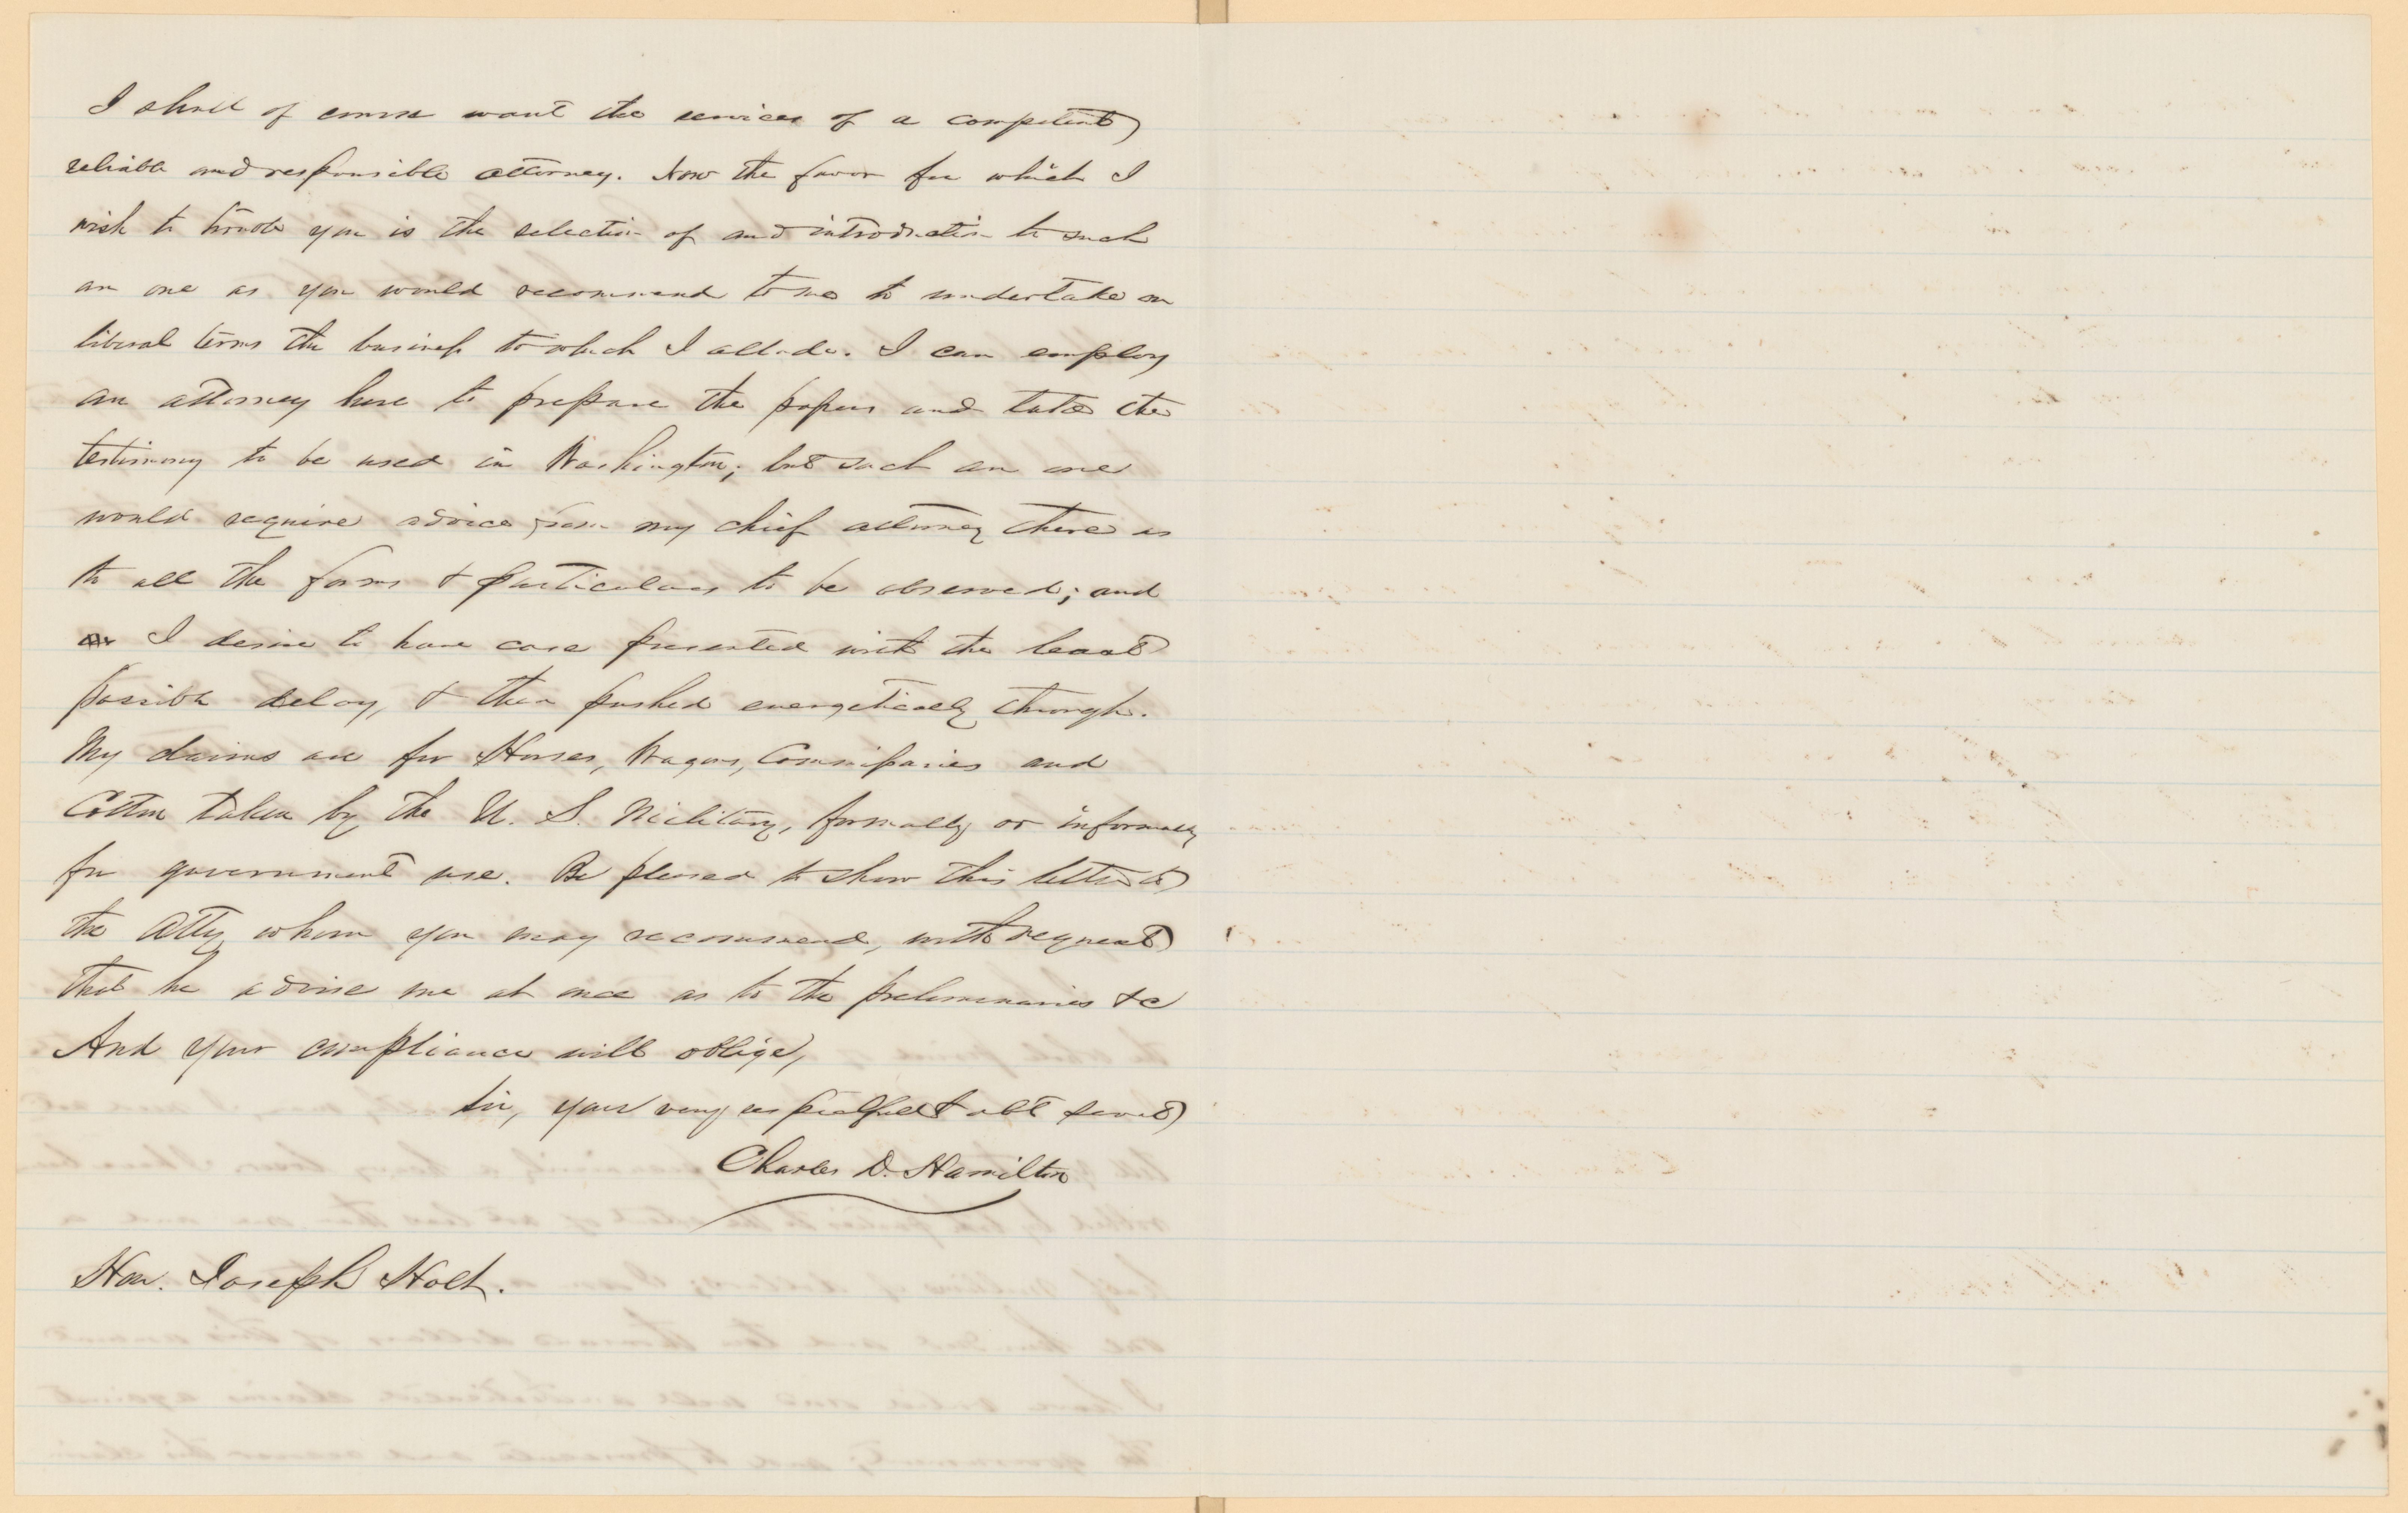 I shall of course want the services of a competent
reliable and responsible attorney. Now the favor for which I
wish to trouble you is the selection of and introduction to such
an one as you would recommend to me to undertake on
liberal terms the business to which I allude. I can employ
an attorney here to prepare the papers and take the
testimony to be used in Washington; but such an one
would require advice from my chief attorney there as
to all the forms & particulars to be observed; and
I desire to have case presented with the least
possible delay, & then pushed energetically through.
My claims are for Horses, Wagons, Commissaries and
Cotton taken by the U. S. Military, formally or informally
for government use. Be pleased to show this letter to
the Atty whom you may recommend, with request
that he advise me at once as to the preliminaries &c
And your compliance will oblige,
Sir, your very respectful & obt servt
Charles D. Hamilton
Hon. Joseph Holt.